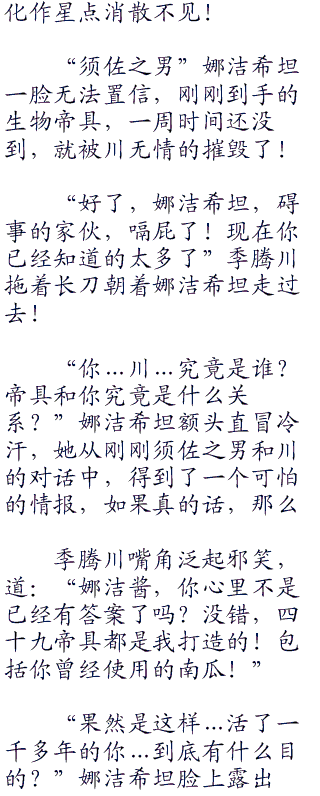 化作星点消散不见！
“须佐之男”娜洁希坦
一脸无法置信，刚刚到手的
生物帝具，一周时间还没
到，就被川无情的摧毁了！
“好了，娜洁希坦，碍
事的家伙，嗝屁了！现在你
已经知道的太多了”季腾川
拖着长刀朝着娜洁希坦走过
去！
“你…川…究竟是谁？
帝具和你究竟是什么关
系？”娜洁希坦额头直冒冷
汗，她从刚刚须佐之男和川
的对话中，得到了一个可怕
的情报，如果真的话，那么
季腾川嘴角泛起邪笑，
道：“娜洁酱，你心里不是
已经有答案了吗？没错，四
十九帝具都是我打造的！包
括你曾经使用的南瓜！”
“果然是这样…活了一
千多年的你…到底有什么目
的？”娜洁希坦脸上露出